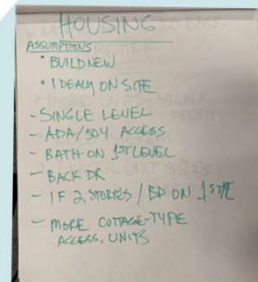 HOUSING
ASSUMPTIONS
• BUILD NEW
• IDEALY ON SITE
- SINGLE LEVEL
- ADA/504 ACCESS
- BATH ON 1ST LEVEL
- BACK DR
- IF 2 STORIES / BD ON 1ST
- MORE COTTAGE-TYPE
ACCESS. UNITS